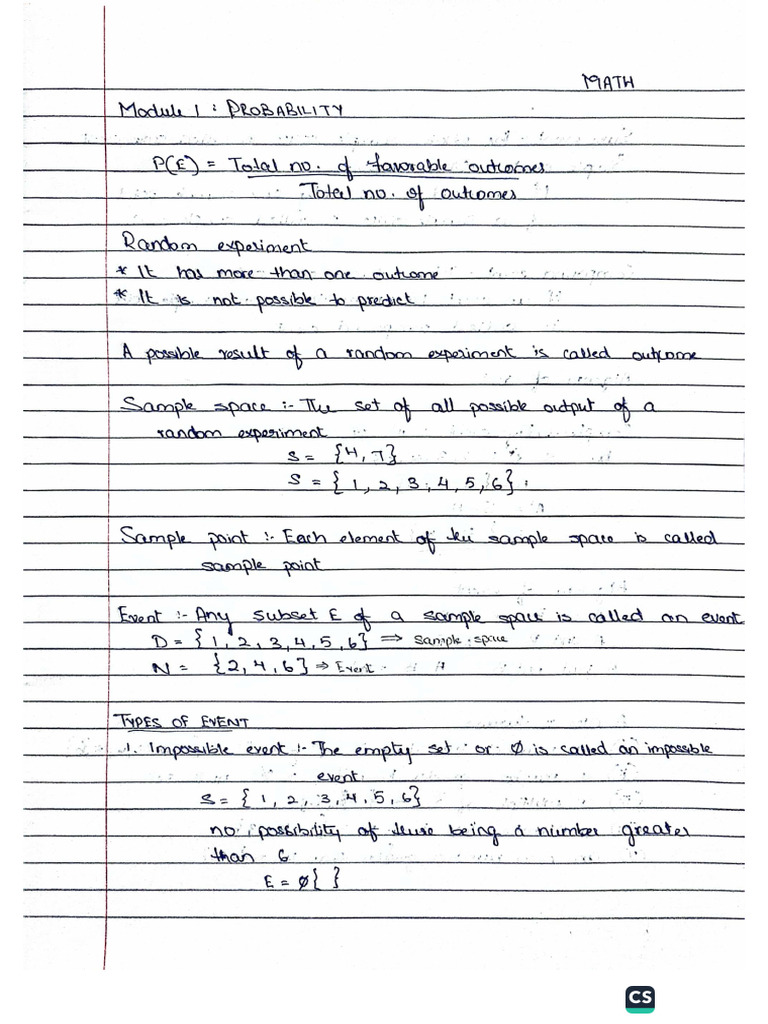 MATH
Module 1 : PROBABILITY
P(E) = Total no. of favorable outcomes
Total no. of outcomes
Random experiment
* It has more than one outcome
* It is not possible to predict
A possible result of a random experiment is called outcome
Sample space :- The set of all possible output of a
random experiment
S = {H, T}
S = {1, 2, 3, 4, 5, 6}
Sample point :- Each element of the sample space is called
sample point
Event :- Any subset E of a sample space is called an event
D = {1, 2, 3, 4, 5, 6} ⇒ Sample space
N = {2, 4, 6} ⇒ Event
TYPES OF EVENT
1. Impossible event :- The empty set or ∅ is called an impossible
event
S = {1, 2, 3, 4, 5, 6}
no possibility of there being a number greater
than 6
E = ∅{ }
CS